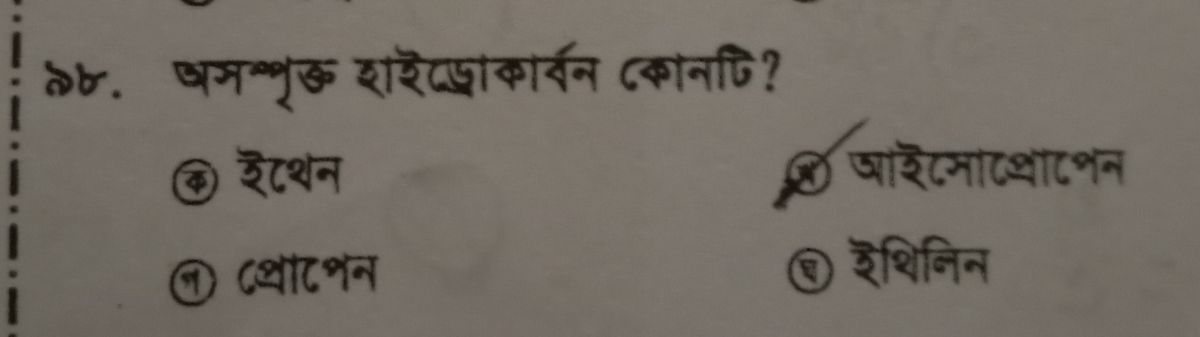 ৯৮. অসম্পৃক্ত হাইড্রোকার্বন কোনটি?
ক ইথেন খ আইসোপ্রোপেন
গ প্রোপেন ঘ ইথিলিন